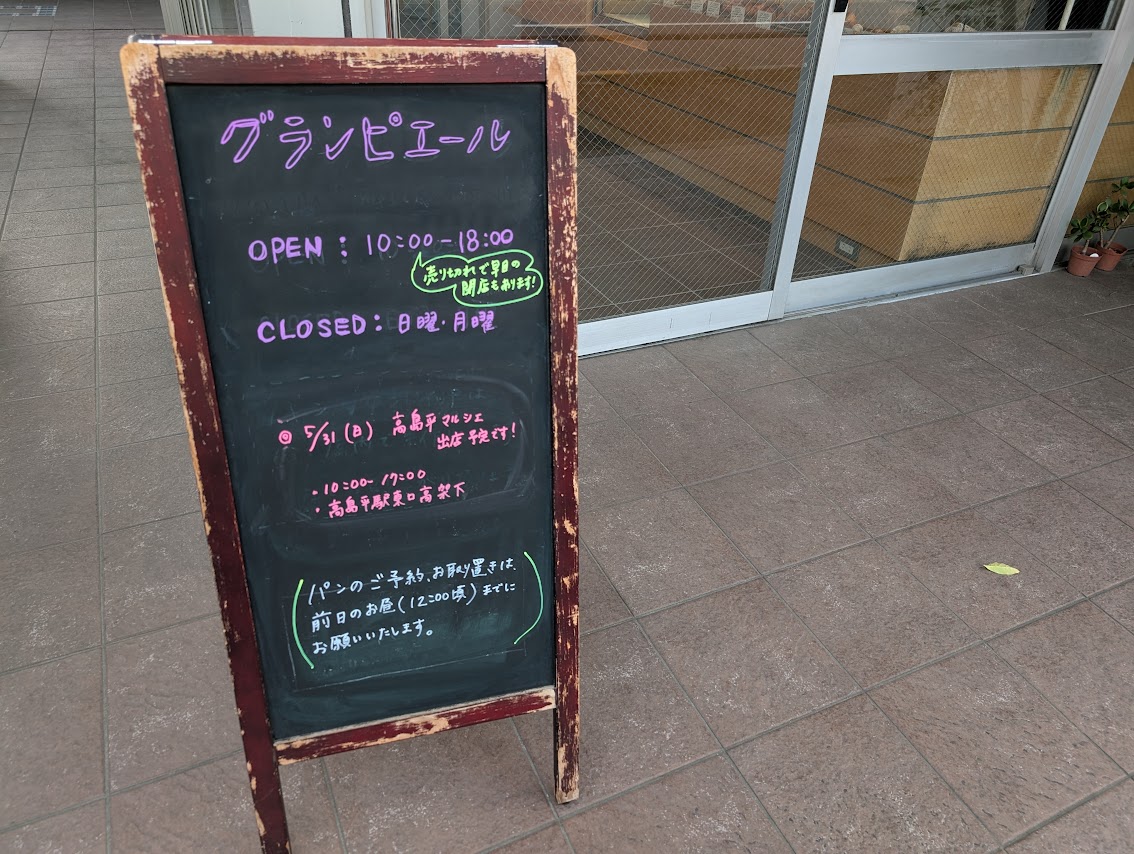 グランピエール
OPEN : 10:00-18:00
売り切れで早目の
閉店もあります!
CLOSED : 日曜・月曜
◎ 5/31(日) 高島平マルシェ
出店予定です!
・10:00-17:00
・高島平駅東口高架下
パンのご予約、お取り置きは、
前日のお昼(12:00頃)までに
お願いいたします。